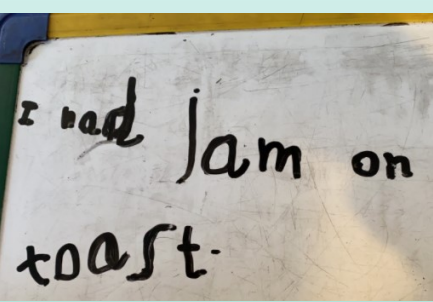 I had jam on
toast.